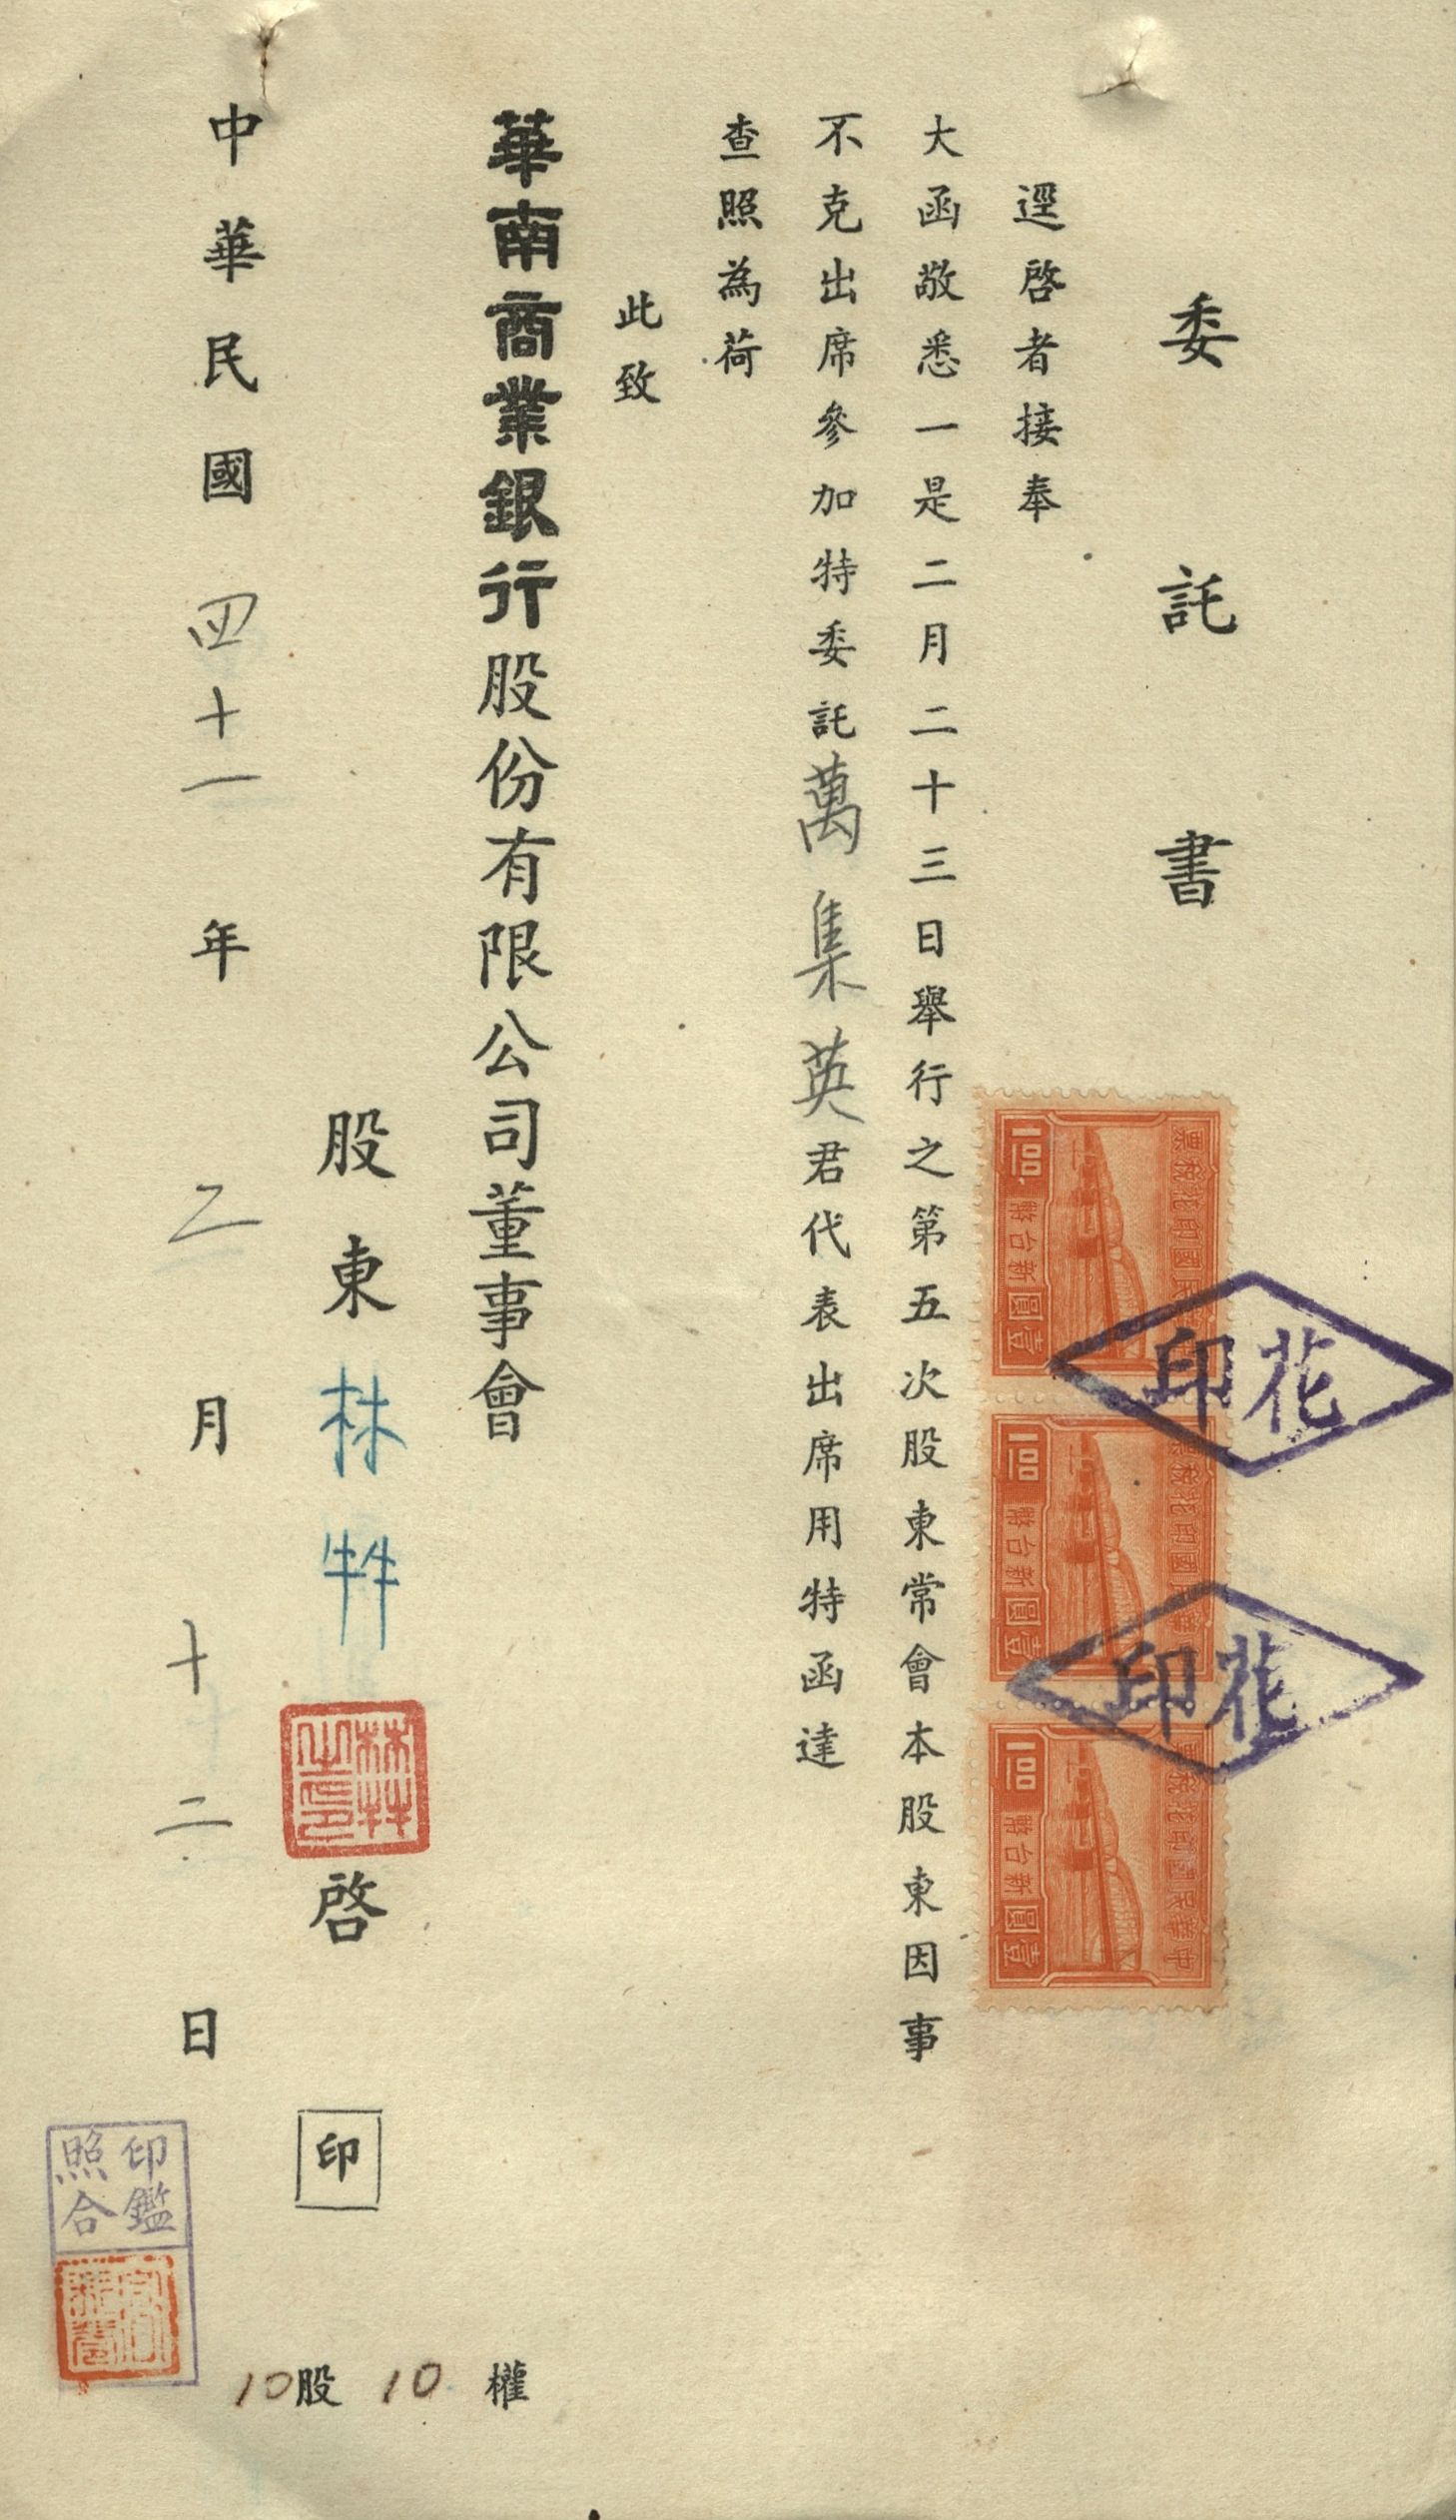 委託書
逕啓者接奉
大函敬悉一是二月二十三日舉行之第五次股東常會本股東因事
不克出席參加特委託萬集英君代表出席用特函達
查照為荷
此致
華南商業銀行股份有限公司董事會
股東林牪啓
印
中華民國四十一年二月十二日
10股 10權
中華民國印花稅票
壹圓新台幣
1.00
中華民國印花稅票
壹圓新台幣
1.00
中華民國印花稅票
壹圓新台幣
1.00
花印
花印
林牪之印
印鑑
照合